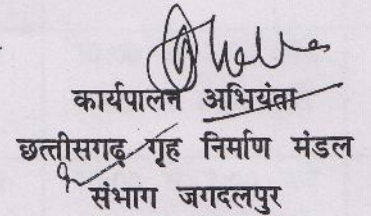 कार्यपालन अभियंता
छत्तीसगढ़ गृह निर्माण मंडल
संभाग जगदलपुर